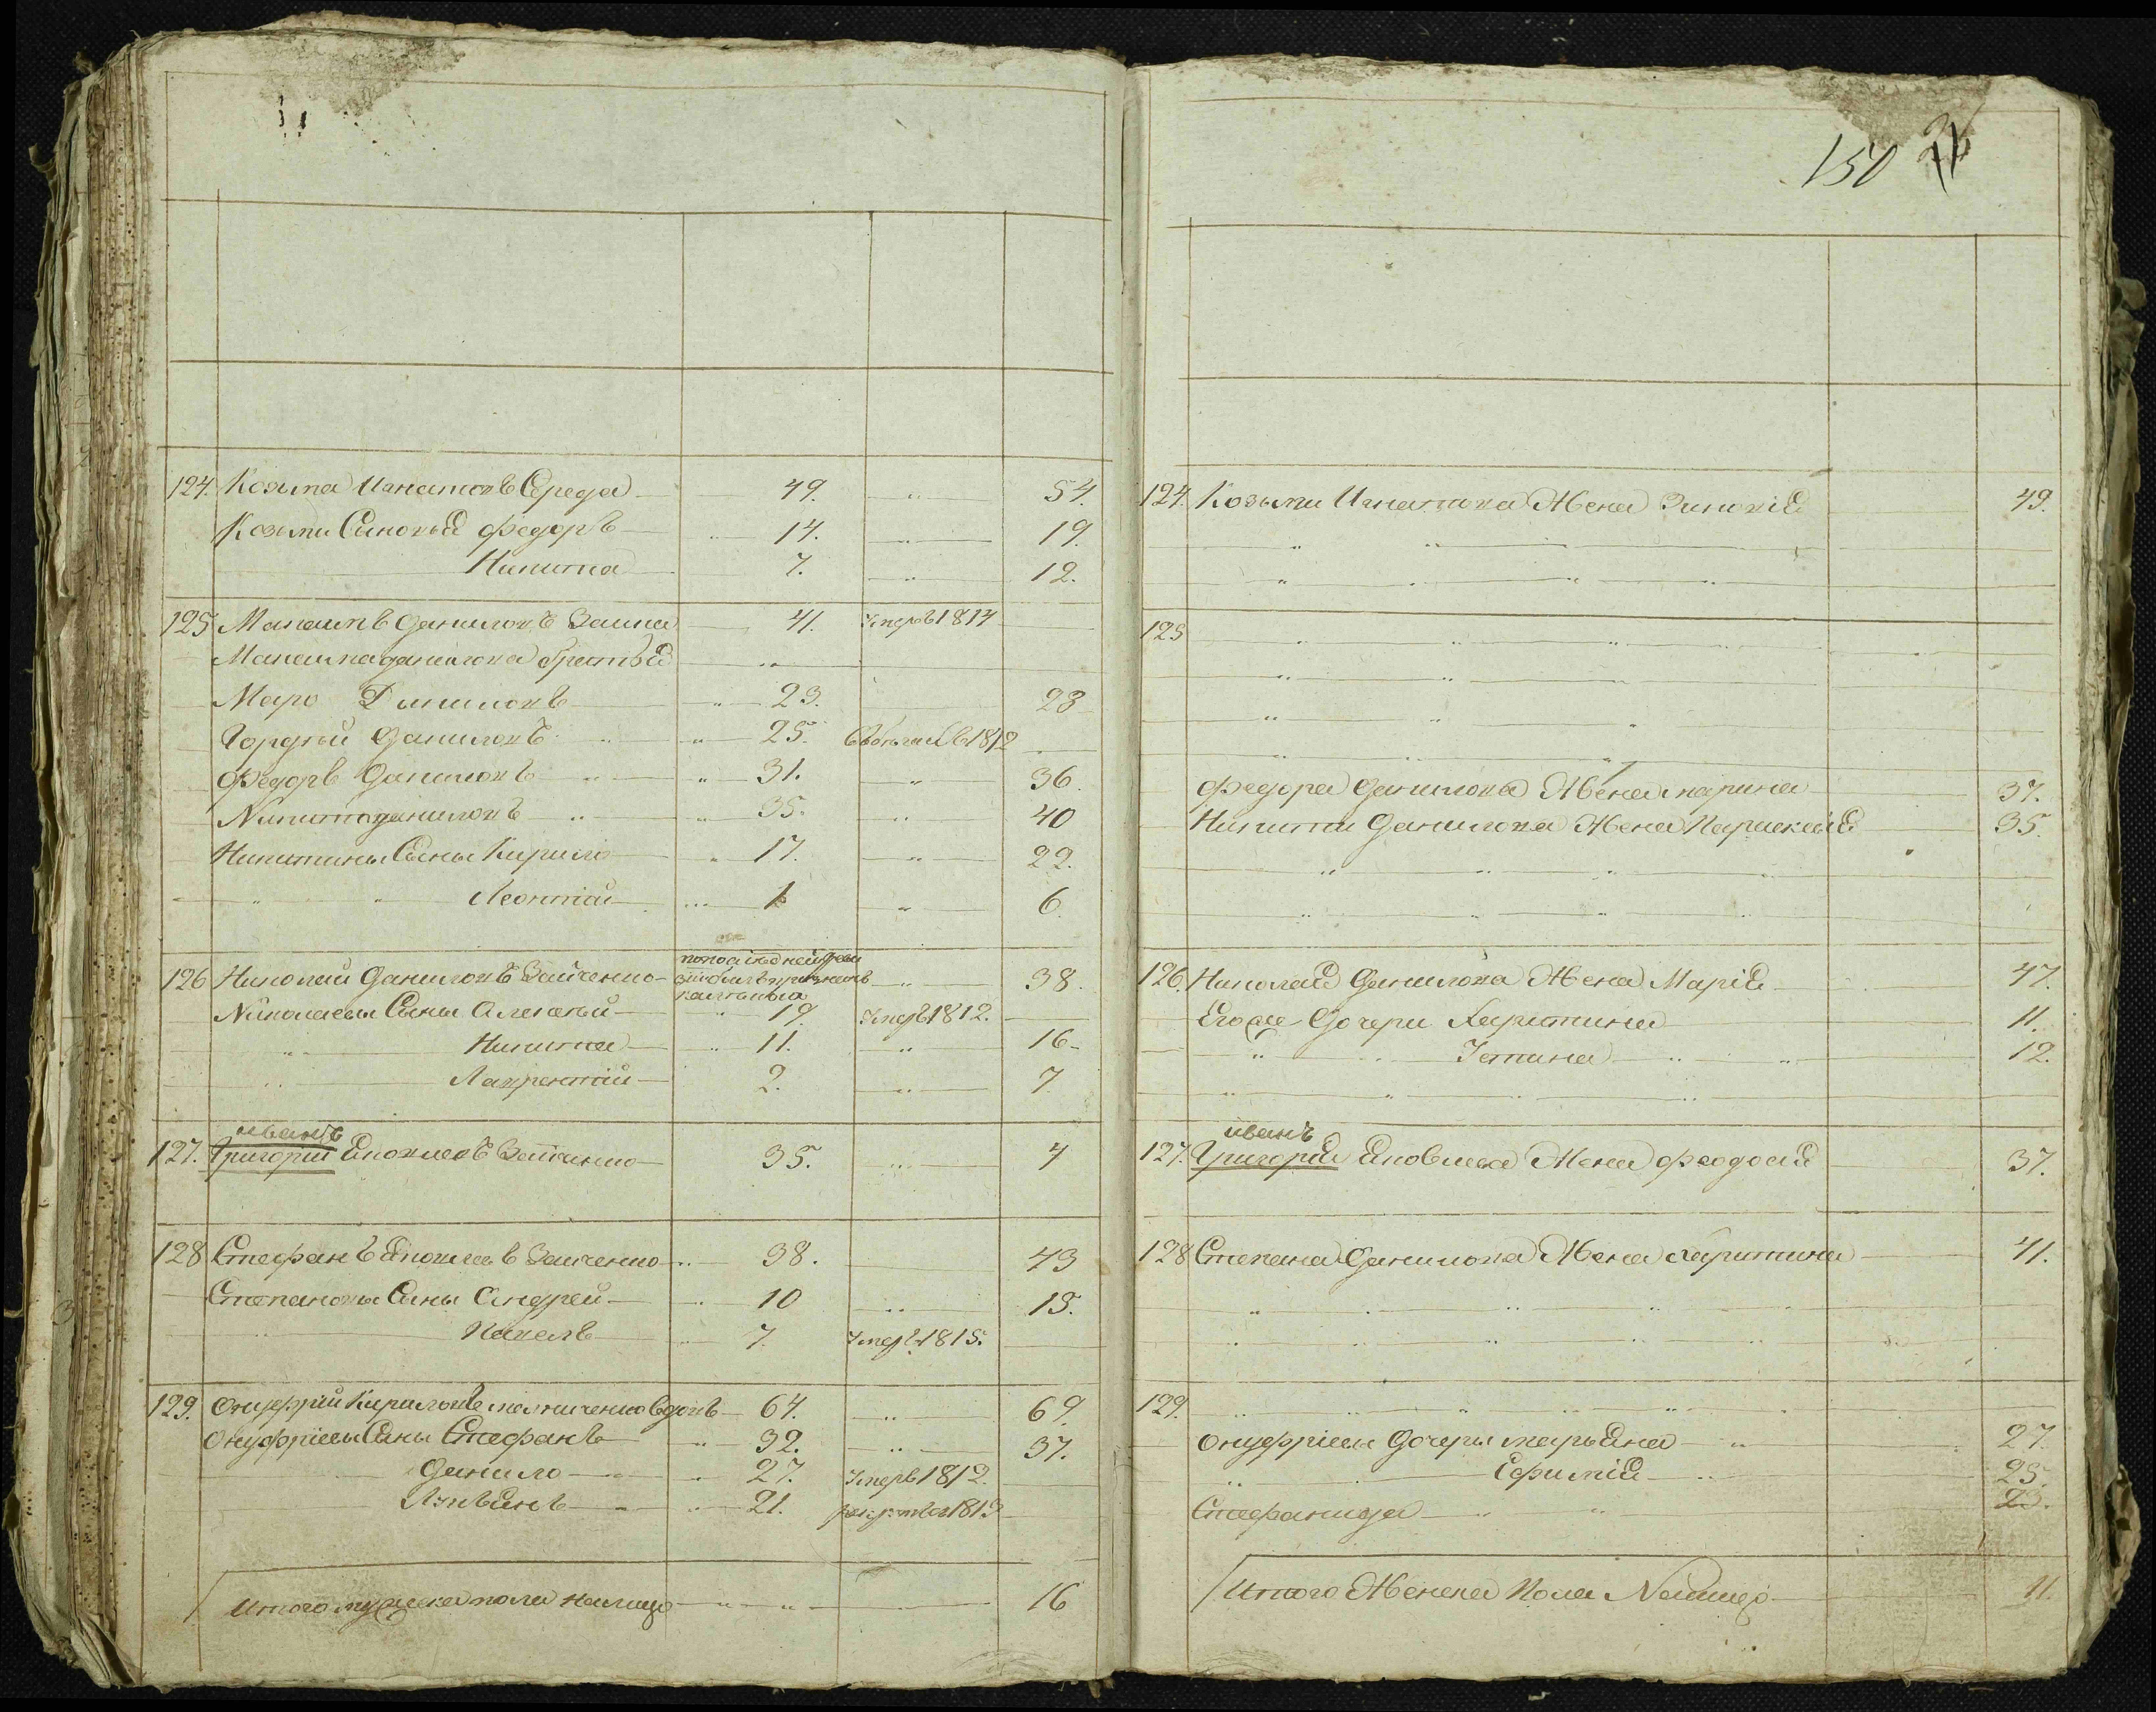 150
124. Козма Игнатовъ Середа 49. 54.
Козми Сыновья Федоръ 14. 19.
Никита 7. 12.
125 Даниловъ Заика 41. умеръ 1814
данилова братья
Марко Даниловъ 23. 28
Гордѣй Даниловъ 25. 1812
Федоръ Даниловъ 31. 36.
Никита даниловъ 35. 40
Никитины Сыны Кирило 17. 22.
Леонтій 1 6.
126 Николай Даниловъ Заиченко 38.
Николаевы Сыны Алексѣй 19. умеръ 1812.
Никита 11. 16
Лаврентій 2. 7.
иванъ
127. Григорій Яковлевъ Заиченко 35. 4
128 Стефанъ Яковлевъ Заиченко 38. 43
Степановы Сыны Андрей 10 15.
Павелъ 7. умеръ 1815.
129. Онуфрій Кириловъ вдовъ 64. 69.
Онуфріевы Сыны Стефанъ 32. 37.
Данило 27. умеръ 1812.
21. 1813
Итого мужеска пола налицо 16
124. Козьми Игнатова Жена Зиновія 49.
125
Федора Данилова Жена марина 37.
Никити Данилова Жена Параскевія 35.
126. Николая Данилова Жена Марія 47.
Его же Дочери Харитина 11.
Устина 12.
иванъ
127. Григорія Яковлева Жена Феодосія 37.
128 Степана Данилова Жена Харитина 41.
129.
Онуфріевы Дочери марьяна 27.
Ефимія 25.
Стефанида 23.
Итого Женска Пола Налицо 11.